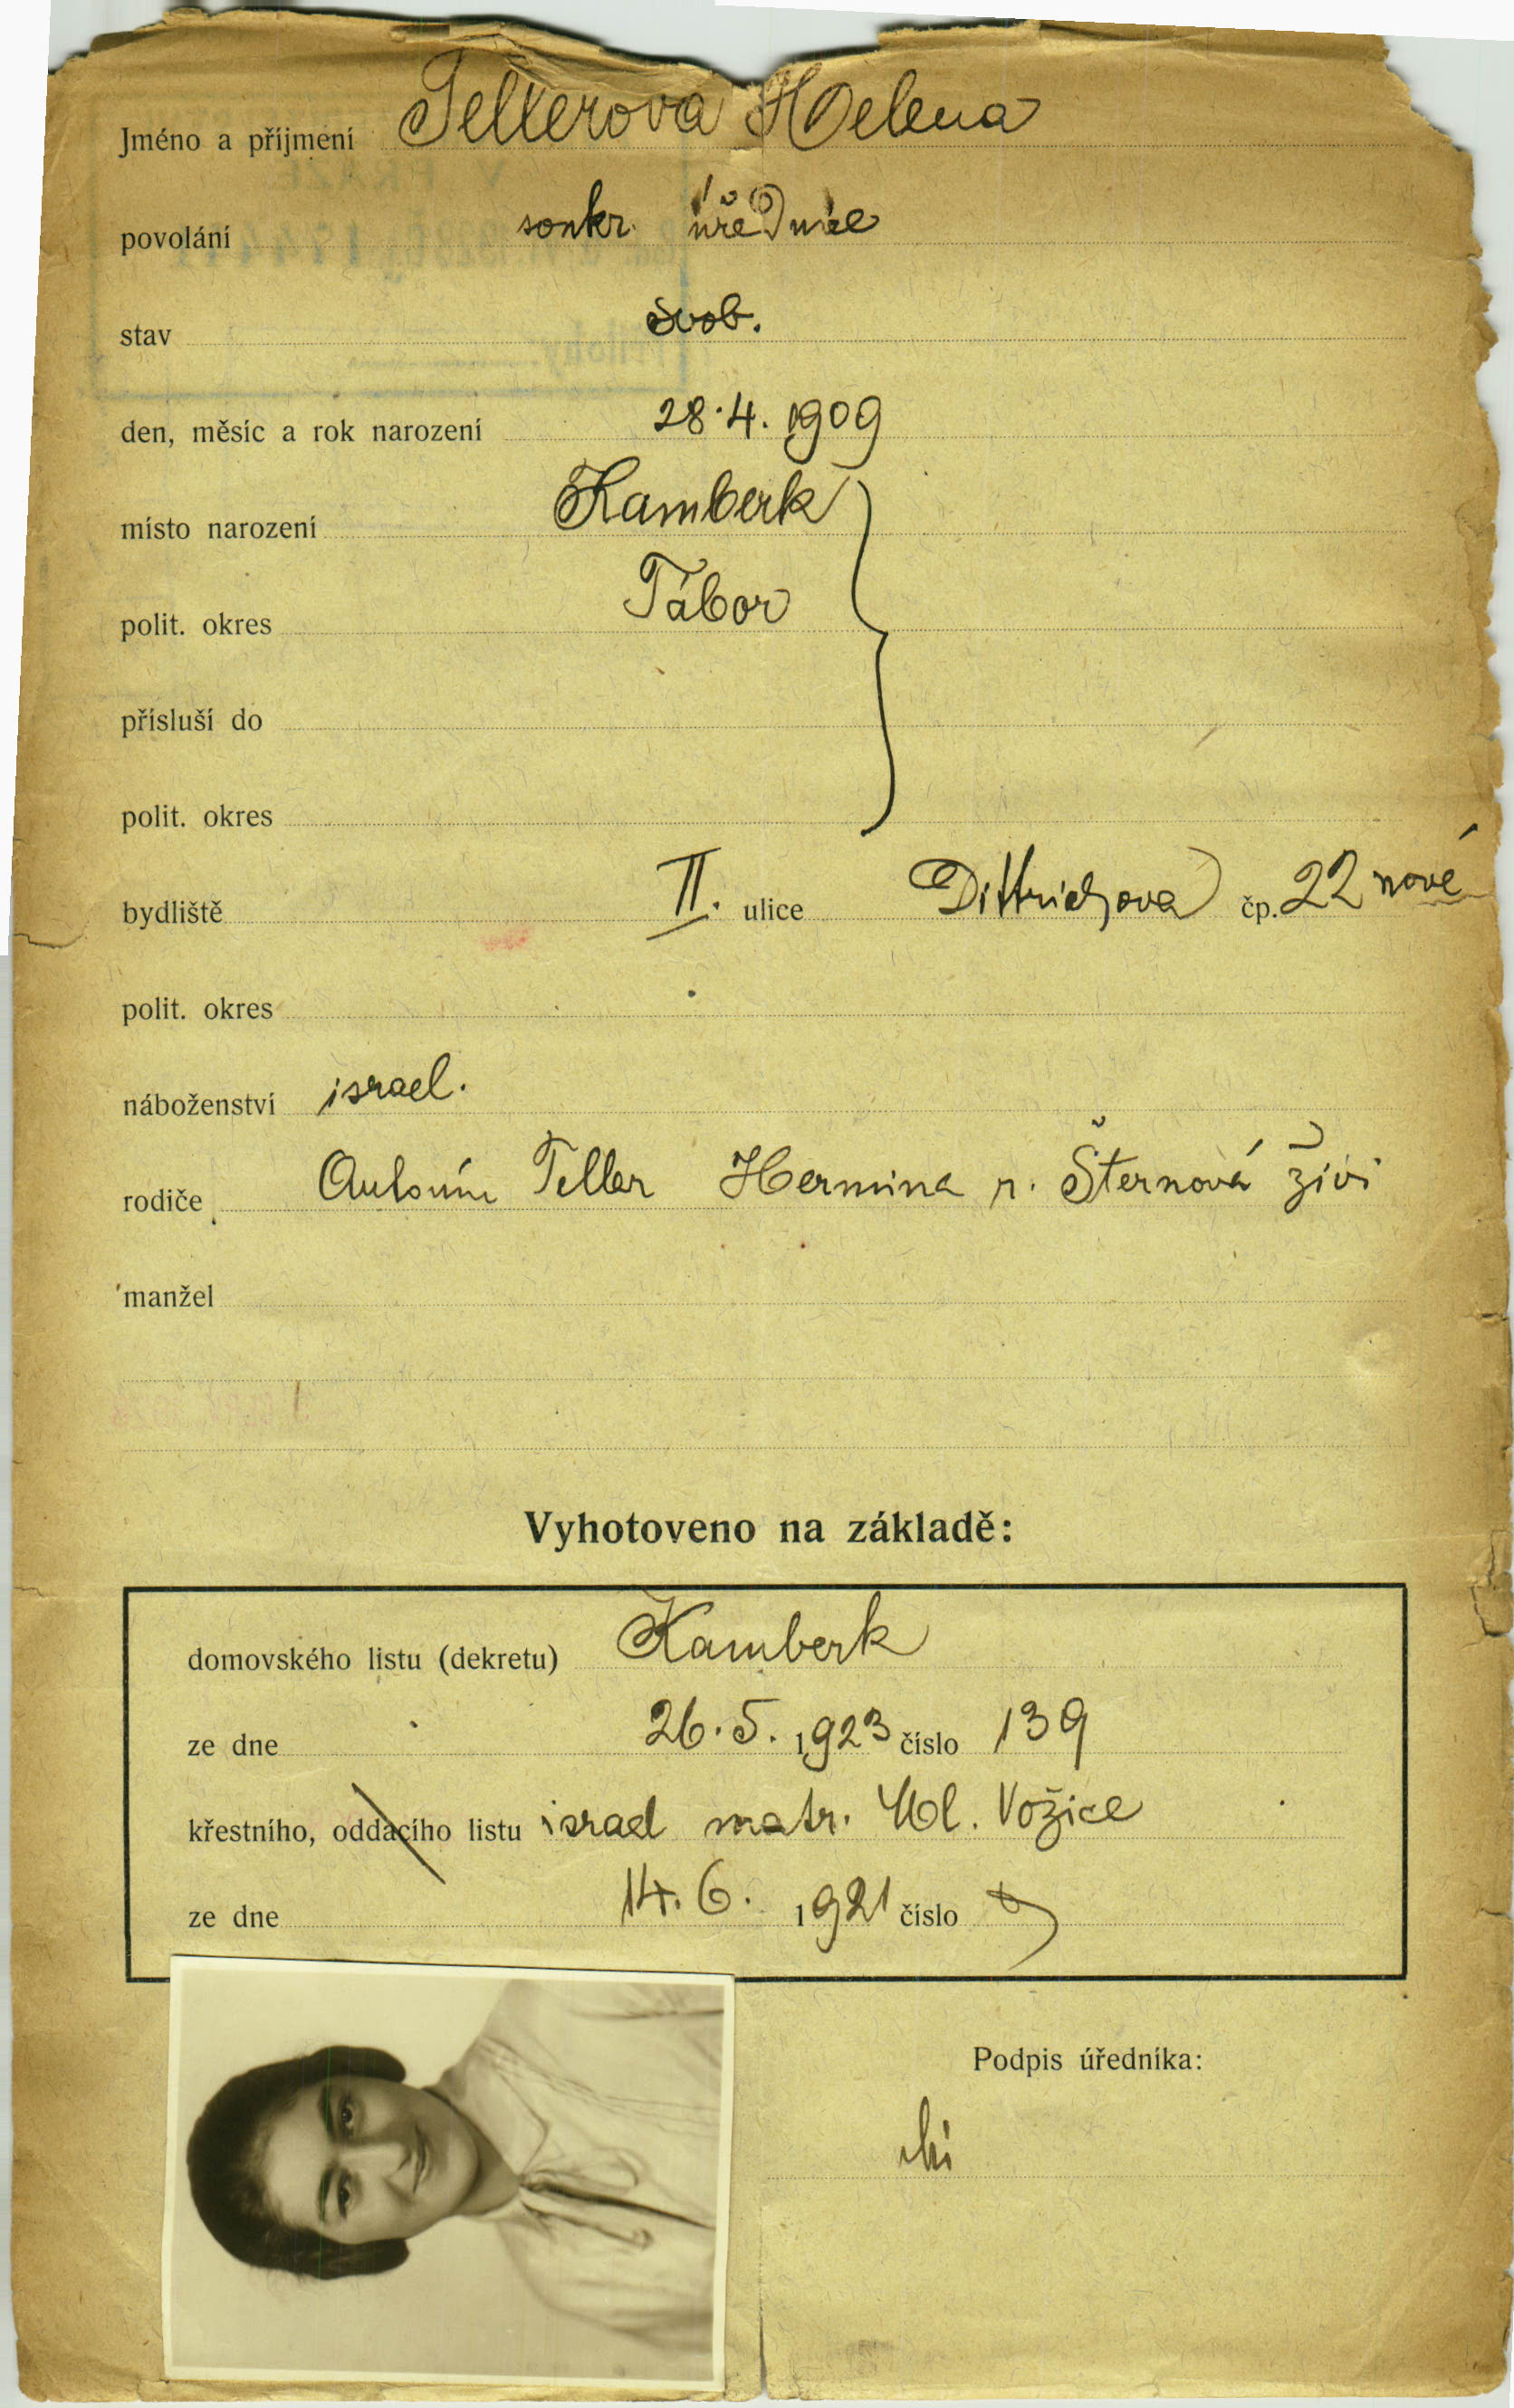 Jméno a příjmení Tellerová Helena
povolání soukr. úřednice
stav svob.
den, měsíc a rok narození 28.4.1909
místo narození Kamberk
polit. okres Tábor
přísluší do
polit. okres
bydliště II. ulice Dittrichova čp. 22 nové
polit. okres
náboženství israel.
rodiče Antonín Teller Hermina r. Šternová živi
manžel
Vyhotoveno na základě:
domovského listu (dekretu) Kamberk
ze dne 26.5.1923 číslo 139
křestního, oddacího listu israel matr. Ml. Vožice
ze dne 14.6. 1921 číslo
Podpis úředníka: